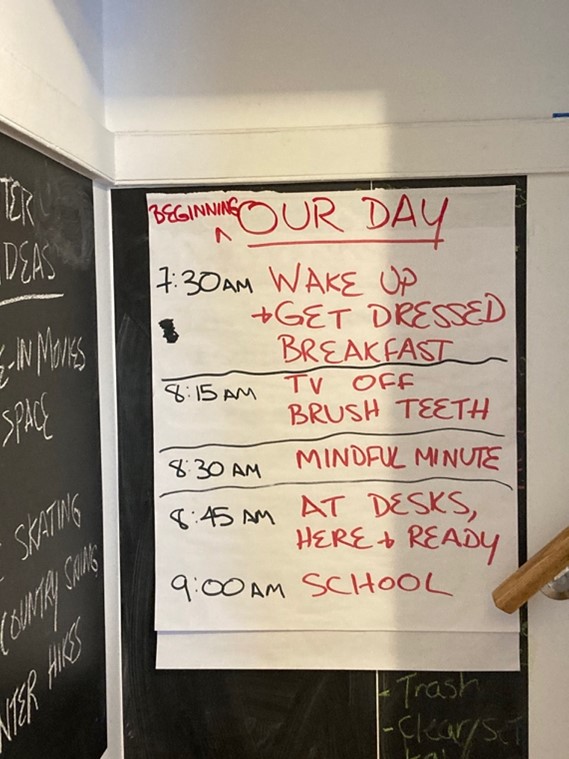 TER
DEAS
E-IN MOVIES
SPACE
SKATING
COUNTRY SKIING
NTER HIKES
BEGINNING ^ OUR DAY
7:30AM WAKE UP
+GET DRESSED
BREAKFAST
8:15AM TV OFF
BRUSH TEETH
8:30 AM MINDFUL MINUTE
8:45 AM AT DESKS,
HERE + READY
9:00AM SCHOOL
-Trash
-Clear/set